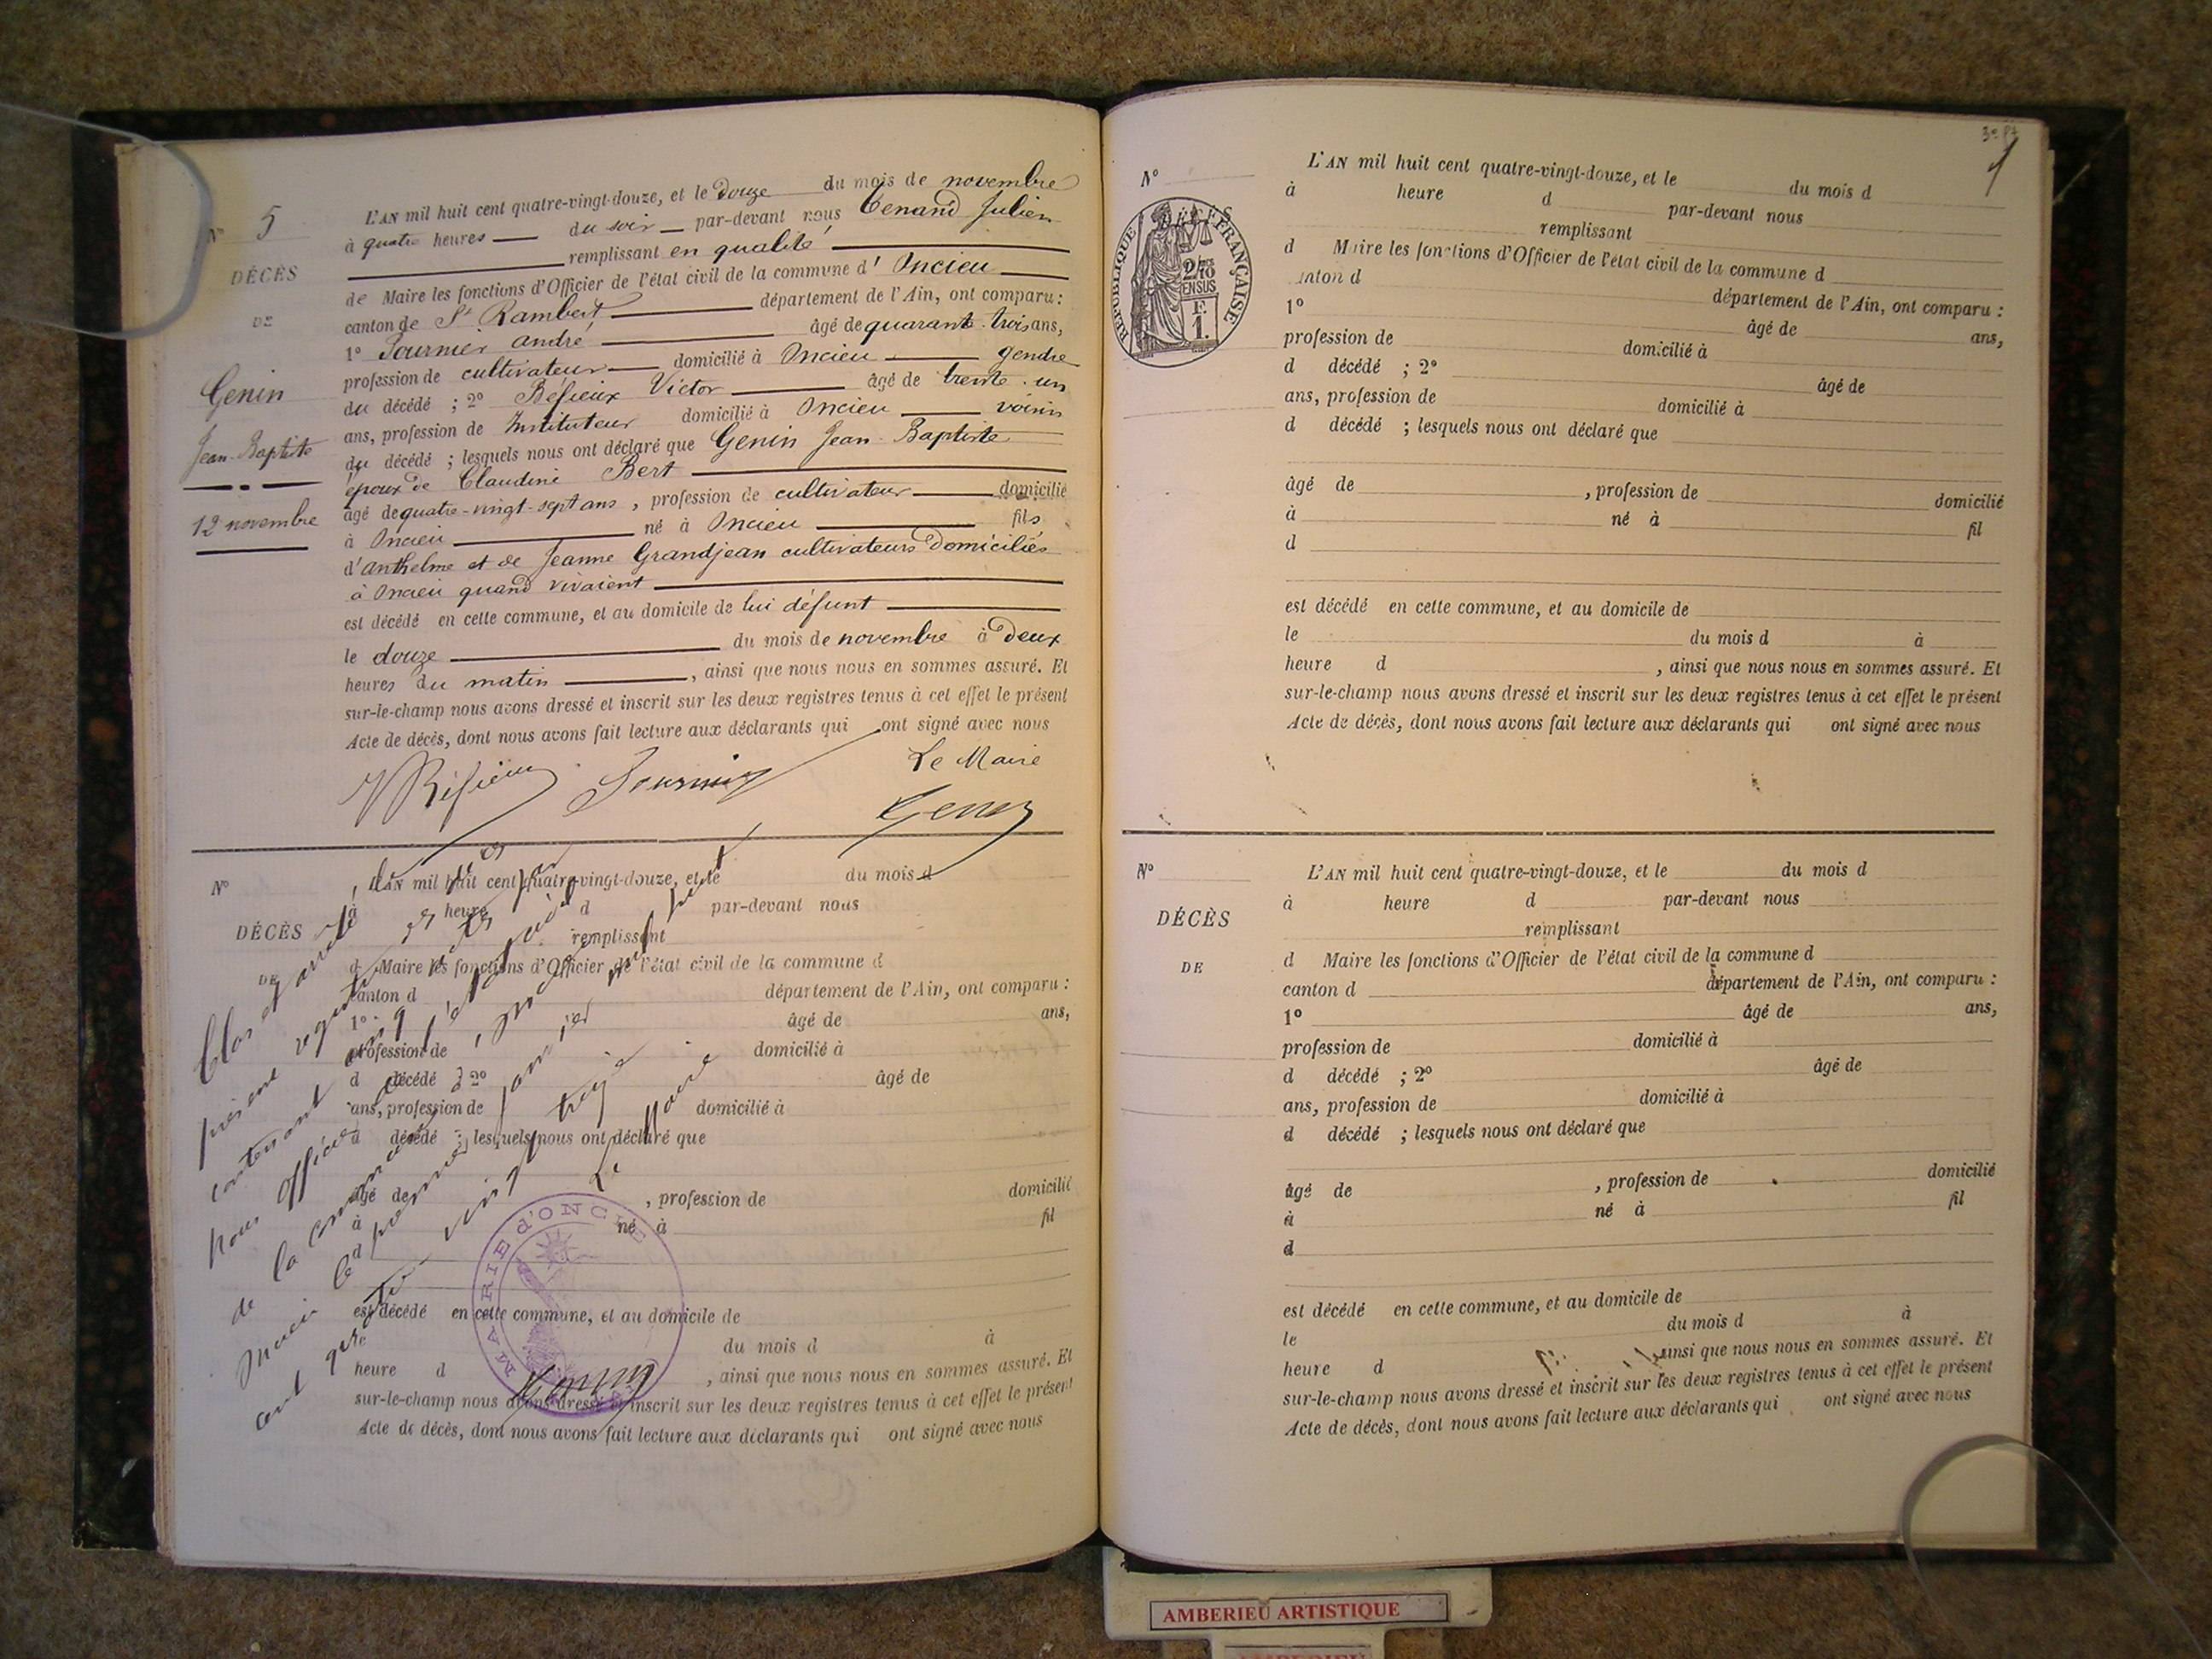 N° 5
DÉCÈS
DE
Genin
Jean-Baptiste
12 novembre
L'AN mil huit cent quatre-vingt-douze, et le douze du mois de novembre
à quatre heures du soir par-devant nous Tenand Julien
remplissant en qualité
de Maire les fonctions d'Officier de l'état civil de la commune d' Oncieu
canton de St Rambert département de l'Ain, ont comparu :
1° Fournier andré âgé de quarante-trois ans,
profession de cultivateur domicilié à Oncieu gendre
du décédé ; 2° Réfieux Victor âgé de trente-un
ans, profession de Instituteur domicilié à Oncieu voisin
du décédé ; lesquels nous ont déclaré que Genin Jean-Baptiste
époux de Claudine Bert
âgé de quatre-vingt-sept ans, profession de cultivateur domicilié
à Oncieu né à Oncieu fils
d'anthelme et de Jeanne Grandjean cultivateurs domiciliés
à Oncieu quand vivaient
est décédé en cette commune, et au domicile de lui défunt
le douze du mois de novembre à deux
heures du matin, ainsi que nous nous en sommes assuré. Et
sur-le-champ nous avons dressé et inscrit sur les deux registres tenus à cet effet le présent
Acte de décès, dont nous avons fait lecture aux déclarants qui ont signé avec nous
Le Maire
N°
DÉCÈS
DE
L'AN mil huit cent quatre-vingt-douze, et le du mois d
à heure d par-devant nous
remplissant
d Maire les fonctions d'Officier de l'état civil de la commune d
canton d département de l'Ain, ont comparu :
1° âgé de ans,
profession de domicilié à
d décédé ; 2° âgé de
ans, profession de domicilié à
d décédé ; lesquels nous ont déclaré que
âgé de , profession de domicilié
à né à fil
d
est décédé en cette commune, et au domicile de
le du mois d à
heure d , ainsi que nous nous en sommes assuré. Et
sur-le-champ nous avons dressé et inscrit sur les deux registres tenus à cet effet le présent
Acte de décès, dont nous avons fait lecture aux déclarants qui ont signé avec nous
Clos et arrêté le
présent registre
contenant cinq actes par
nous officier de l'état civil
de la commune d
Oncieu le premier janvier mil huit
cent quatre vingt treize
Le Maire
MAIRIE d'ONCIEU
N°
DÉCÈS
RÉPUBLIQUE FRANÇAISE
L'AN mil huit cent quatre-vingt-douze, et le du mois d
à heure d par-devant nous
remplissant
d Maire les fonctions d'Officier de l'état civil de la commune d
canton d département de l'Ain, ont comparu :
1° âgé de ans,
profession de domicilié à
d décédé ; 2° âgé de
ans, profession de domicilié à
d décédé ; lesquels nous ont déclaré que
âgé de , profession de domicilié
à né à fil
d
est décédé en cette commune, et au domicile de
le du mois d à
heure d , ainsi que nous nous en sommes assuré. Et
sur-le-champ nous avons dressé et inscrit sur les deux registres tenus à cet effet le présent
Acte de décès, dont nous avons fait lecture aux déclarants qui ont signé avec nous
N°
DÉCÈS
DE
L'AN mil huit cent quatre-vingt-douze, et le du mois d
à heure d par-devant nous
remplissant
d Maire les fonctions d'Officier de l'état civil de la commune d
canton d département de l'Ain, ont comparu :
1° âgé de ans,
profession de domicilié à
d décédé ; 2° âgé de
ans, profession de domicilié à
d décédé ; lesquels nous ont déclaré que
âgé de , profession de domicilié
à né à fil
d
est décédé en cette commune, et au domicile de
le du mois d à
heure d ainsi que nous nous en sommes assuré. Et
sur-le-champ nous avons dressé et inscrit sur les deux registres tenus à cet effet le présent
Acte de décès, dont nous avons fait lecture aux déclarants qui ont signé avec nous
AMBERIEU ARTISTIQUE
AMBERIEU